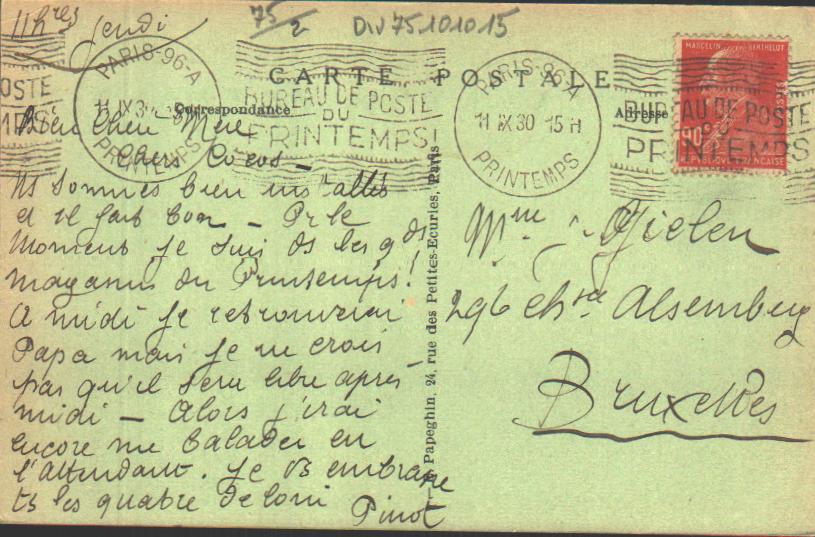 11hres jeudi
75/2
DIV 75.10.10.15
CARTE POSTALE
Correspondance
Adresse
PARIS-96-A
11 IX 30
PRINTEMPS
BUREAU DE POSTE
DU
PRINTEMPS!
PARIS-96-A
11 IX 30 15 H
PRINTEMPS
BUREAU DE POSTE
PRINTEMPS
MARCELIN BERTHELOT
90c
POSTES
REPUBLIQUE FRANCAISE
Mère
Chers Cocos –
Ns sommes bien installés
et il fait bon – Pr le
moment je suis ds les gds
magasins du Printemps!
A midi je retrouverai
Papa mais je ne crois
pas qu'il sera libre après-
midi – Alors j'irai
encore me balader en
l'attendant. Je vs embrasse
ts les quatre de loin
Pinot
Papeghin, 24, rue des Petites-Ecuries, Paris
Mme Gielen
296 chsée Alsemberg
Bruxelles